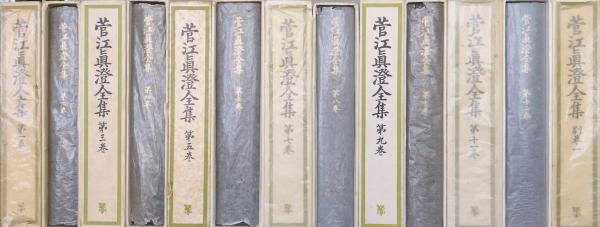 菅江眞澄全集 第一巻
菅江眞澄全集 第二巻
菅江眞澄全集 第三巻
菅江眞澄全集 第四巻
菅江眞澄全集 第五巻
菅江眞澄全集 第六巻
菅江眞澄全集 第七巻
菅江眞澄全集 第八巻
菅江眞澄全集 第九巻
菅江眞澄全集 第十巻
菅江眞澄全集 第十一巻
菅江眞澄全集 第十二巻
菅江眞澄全集 別巻一